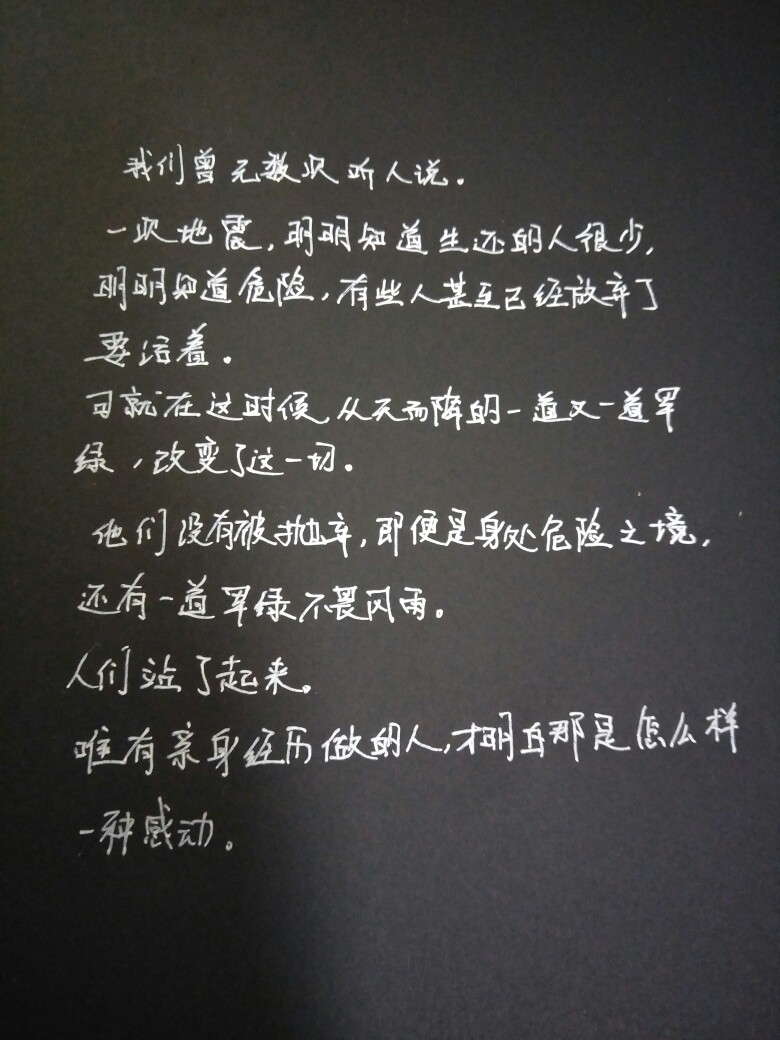 我们曾无数次听人说。
一次地震，明明知道生还的人很少，
明明知道危险，有些人甚至已经放弃了
要活着。
可就在这时候，从天而降的一道又一道军
绿，改变了这一切。
他们没有被抛弃，即便是身处危险之境，
还有一道军绿不畏风雨。
人们站了起来。
唯有亲身经历做的人，才明白那是怎么样
一种感动。